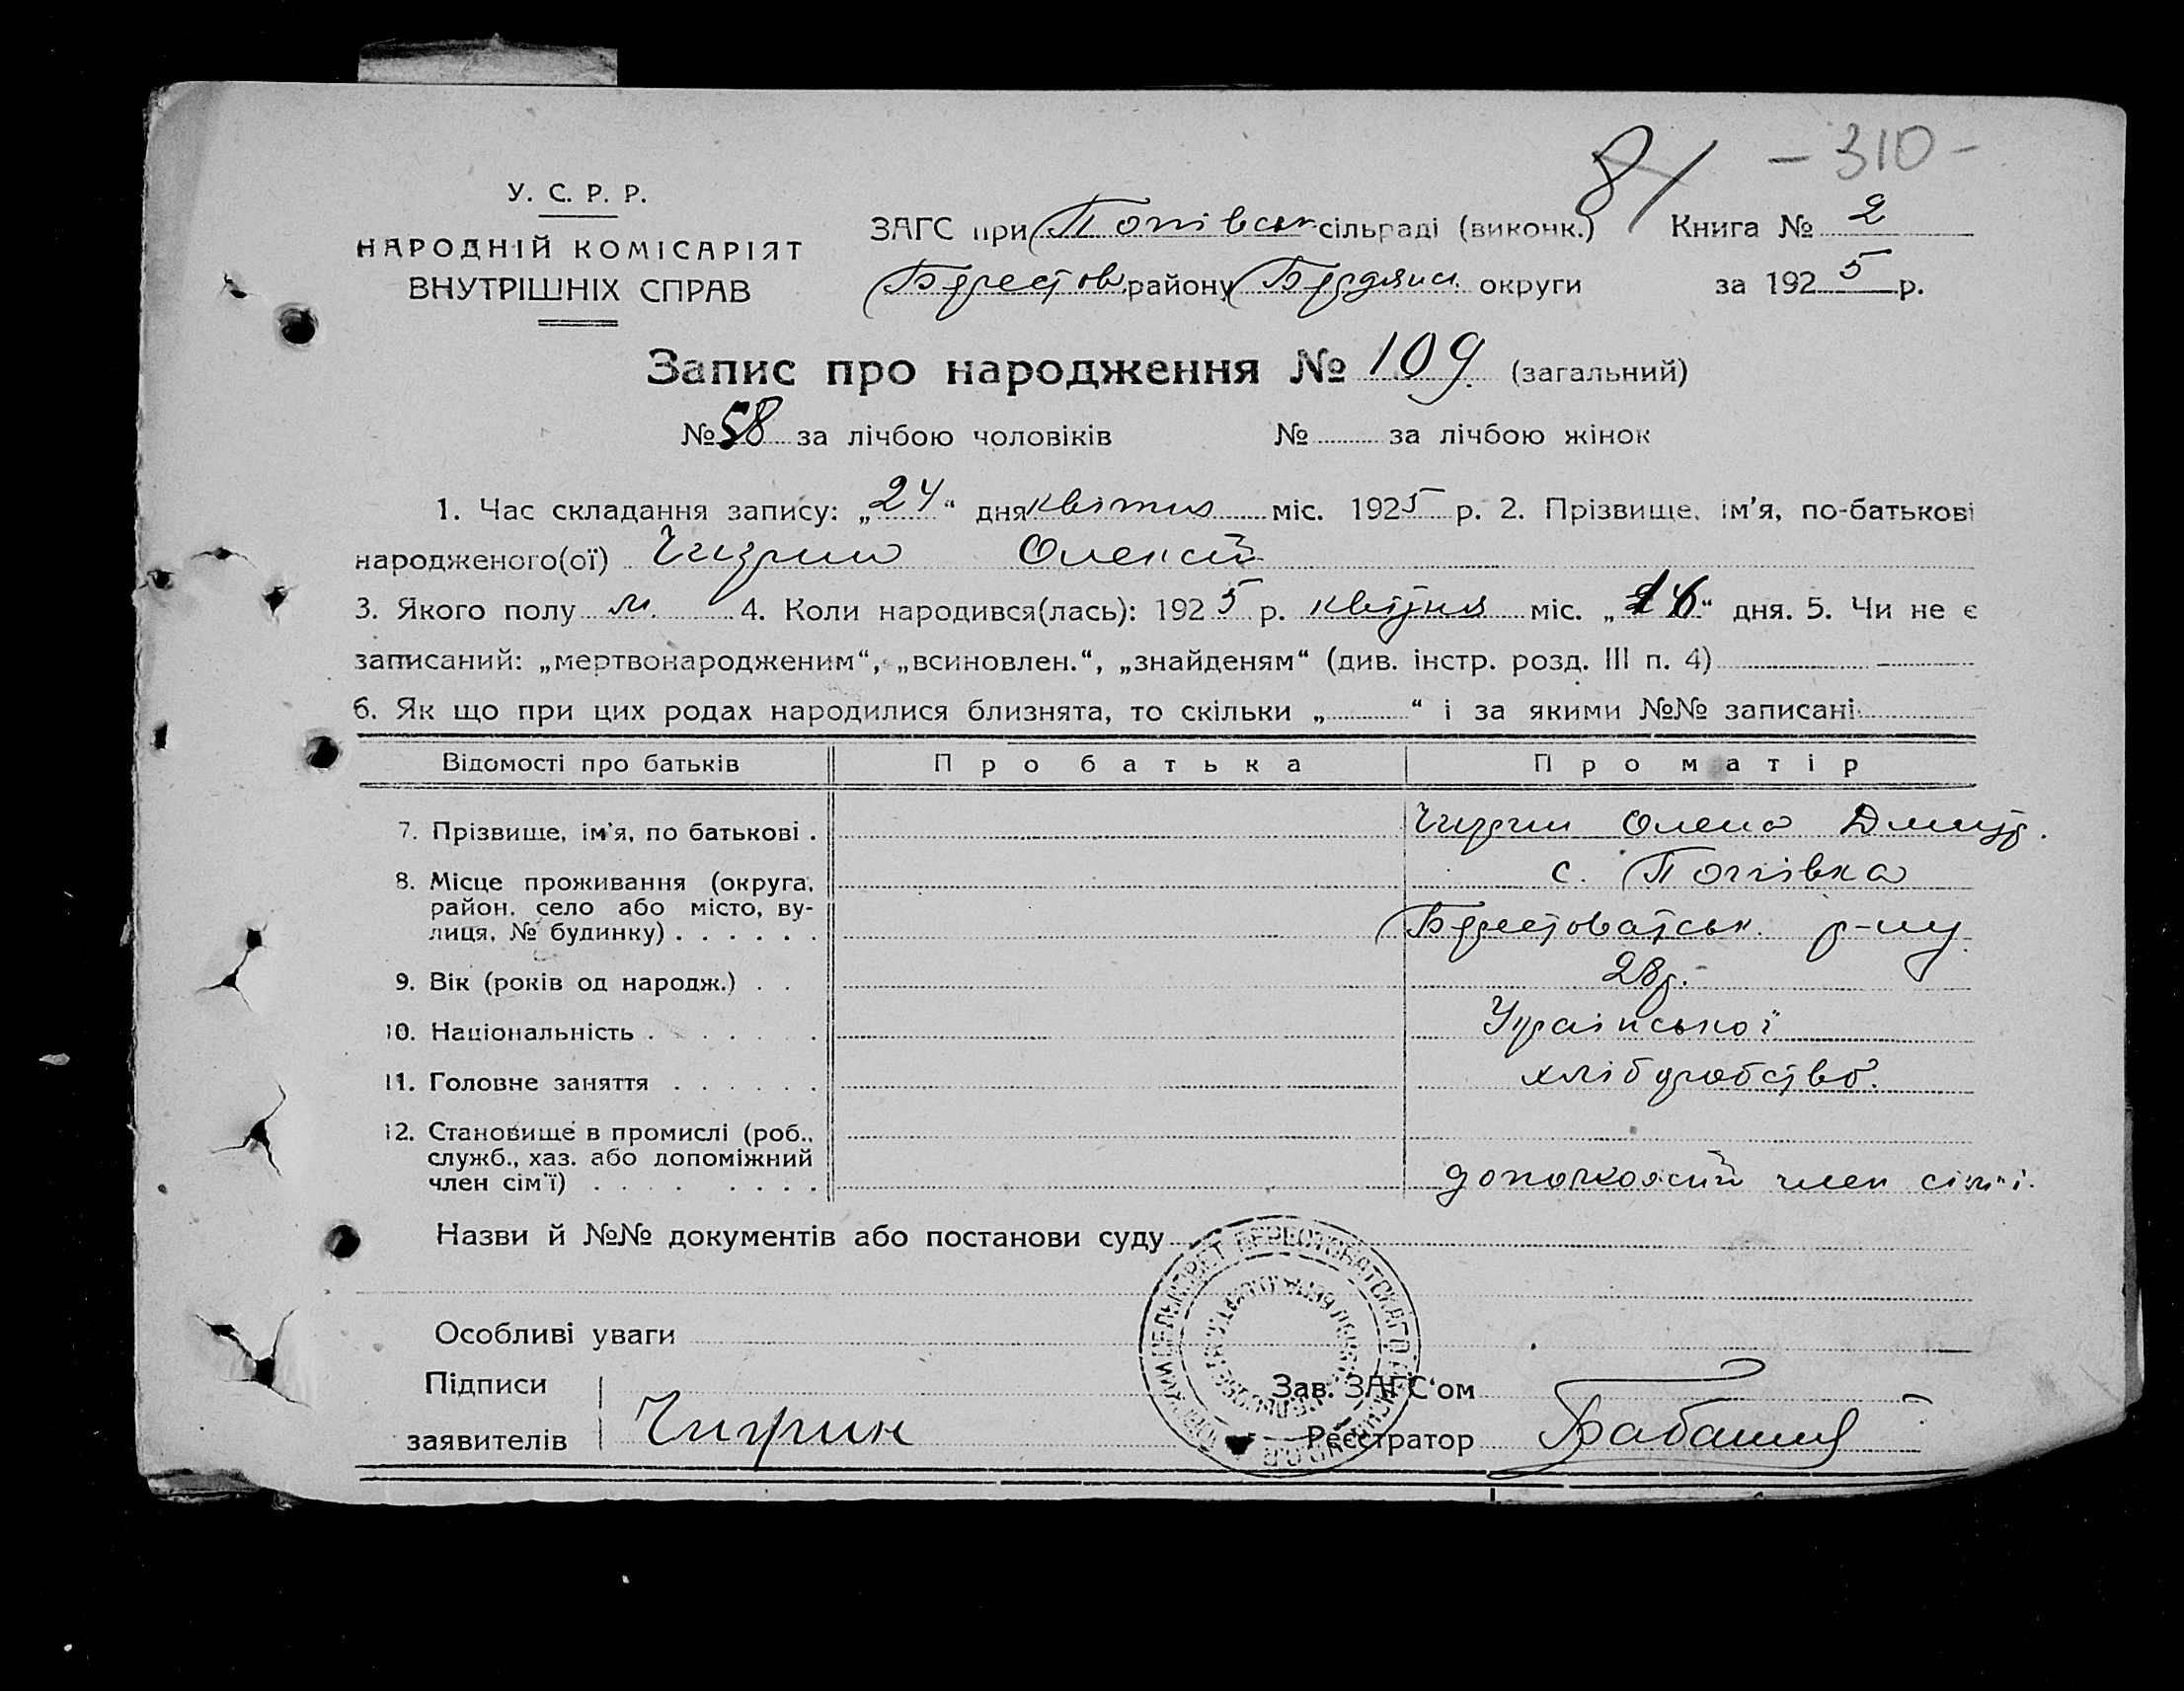 81 - 310 -
У. С. Р. Р.
НАРОДНІЙ КОМІСАРІЯТ
ВНУТРІШНІХ СПРАВ
ЗАГС при Попівськ сільраді (виконк.) Книга № 2
Берестов району Бердянськ. округи за 1925 р.
Запис про народження № 109. (загальний)
№ 58 за лічбою чоловіків № за лічбою жінок
1. Час складання запису: „24“ дня квітня міс. 1925 р. 2. Прізвище, ім'я, по-батькові
народженого(ої) Чигрин Олексій
3. Якого полу м. 4. Коли народився(лась): 1925 р. квітня міс. „16“ дня. 5. Чи не є
записаний: „мертвонародженим“, „всиновлен.“, „знайденям“ (див. інстр. розд. III п. 4)
6. Як що при цих родах народилися близнята, то скільки „ “ і за якими №№ записані
Відомості про батьків Про батька Про матір
7. Прізвище, ім'я, по батькові . Чигрин Олена Дмитр.
8. Місце проживання (округа, с. Попівка
район, село або місто, ву-
лиця, № будинку) . . . . . . Берестоватськ. р-ну
9. Вік (років од народж.) . . 28р.
10. Національність . . . . . . Української
11. Головне заняття . . . . . . хліборобство.
12. Становище в промислі (роб.,
служб., хаз. або допоміжний
член сім'ї) . . . . . . . . допоможний член сім'ї.
Назви й №№ документів або постанови суду
Особливі уваги
Підписи Зав. ЗАГС'ом
заявителів Чигрин Реєстратор